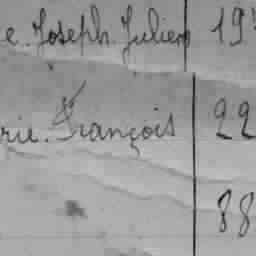 e. Joseph. Julien 19
rie. François 22
88